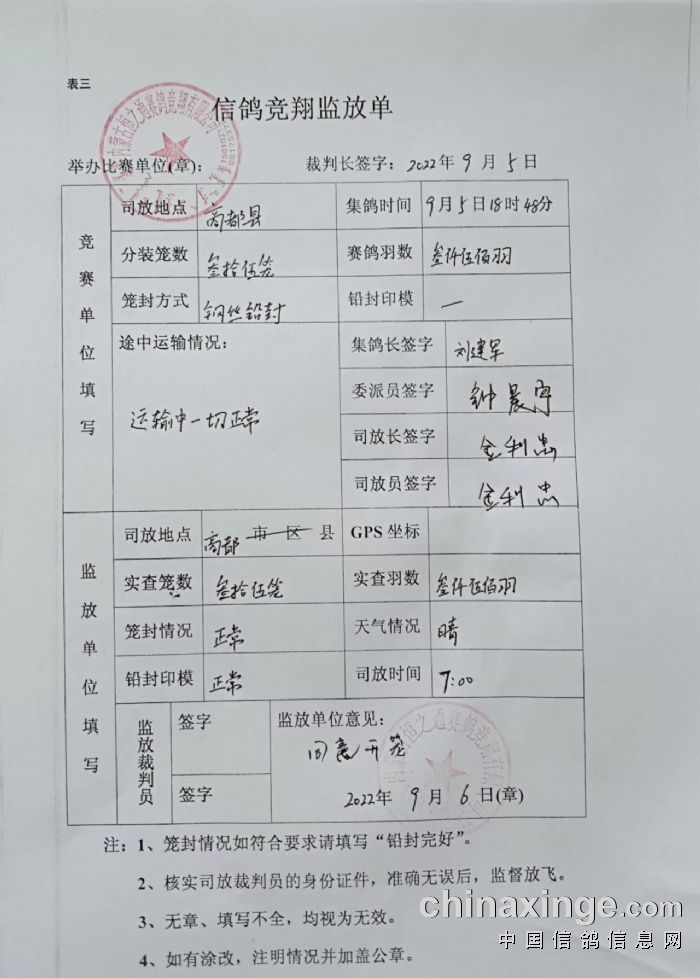 表三
信鸽竞翔监放单
内蒙古恒之通赛鸽竞翔有限公司
举办比赛单位(章)： 裁判长签字：2022年9月5日
竞赛单位填写
司放地点 商都县 集鸽时间 9月5日18时48分
分装笼数 叁拾伍笼 赛鸽羽数 叁仟伍佰羽
笼封方式 钢丝铅封 铅封印模 一
途中运输情况： 集鸽长签字 刘建军
运输中一切正常 委派员签字 钟晨宇
司放长签字 金利忠
司放员签字 金利忠
监放单位填写
司放地点 商都 市 区 县 GPS 坐标
实查笼数 叁拾伍笼 实查羽数 叁仟伍佰羽
笼封情况 正常 天气情况 晴
铅封印模 正常 司放时间 7:00
监放裁判员 签字 监放单位意见：
同意开笼
签字 2022年9月6日(章)
注：1、笼封情况如符合要求请填写“铅封完好”。
2、核实司放裁判员的身份证件，准确无误后，监督放飞。
3、无章、填写不全，均视为无效。
4、如有涂改，注明情况并加盖公章。
chinaxinge.com
中国信鸽信息网